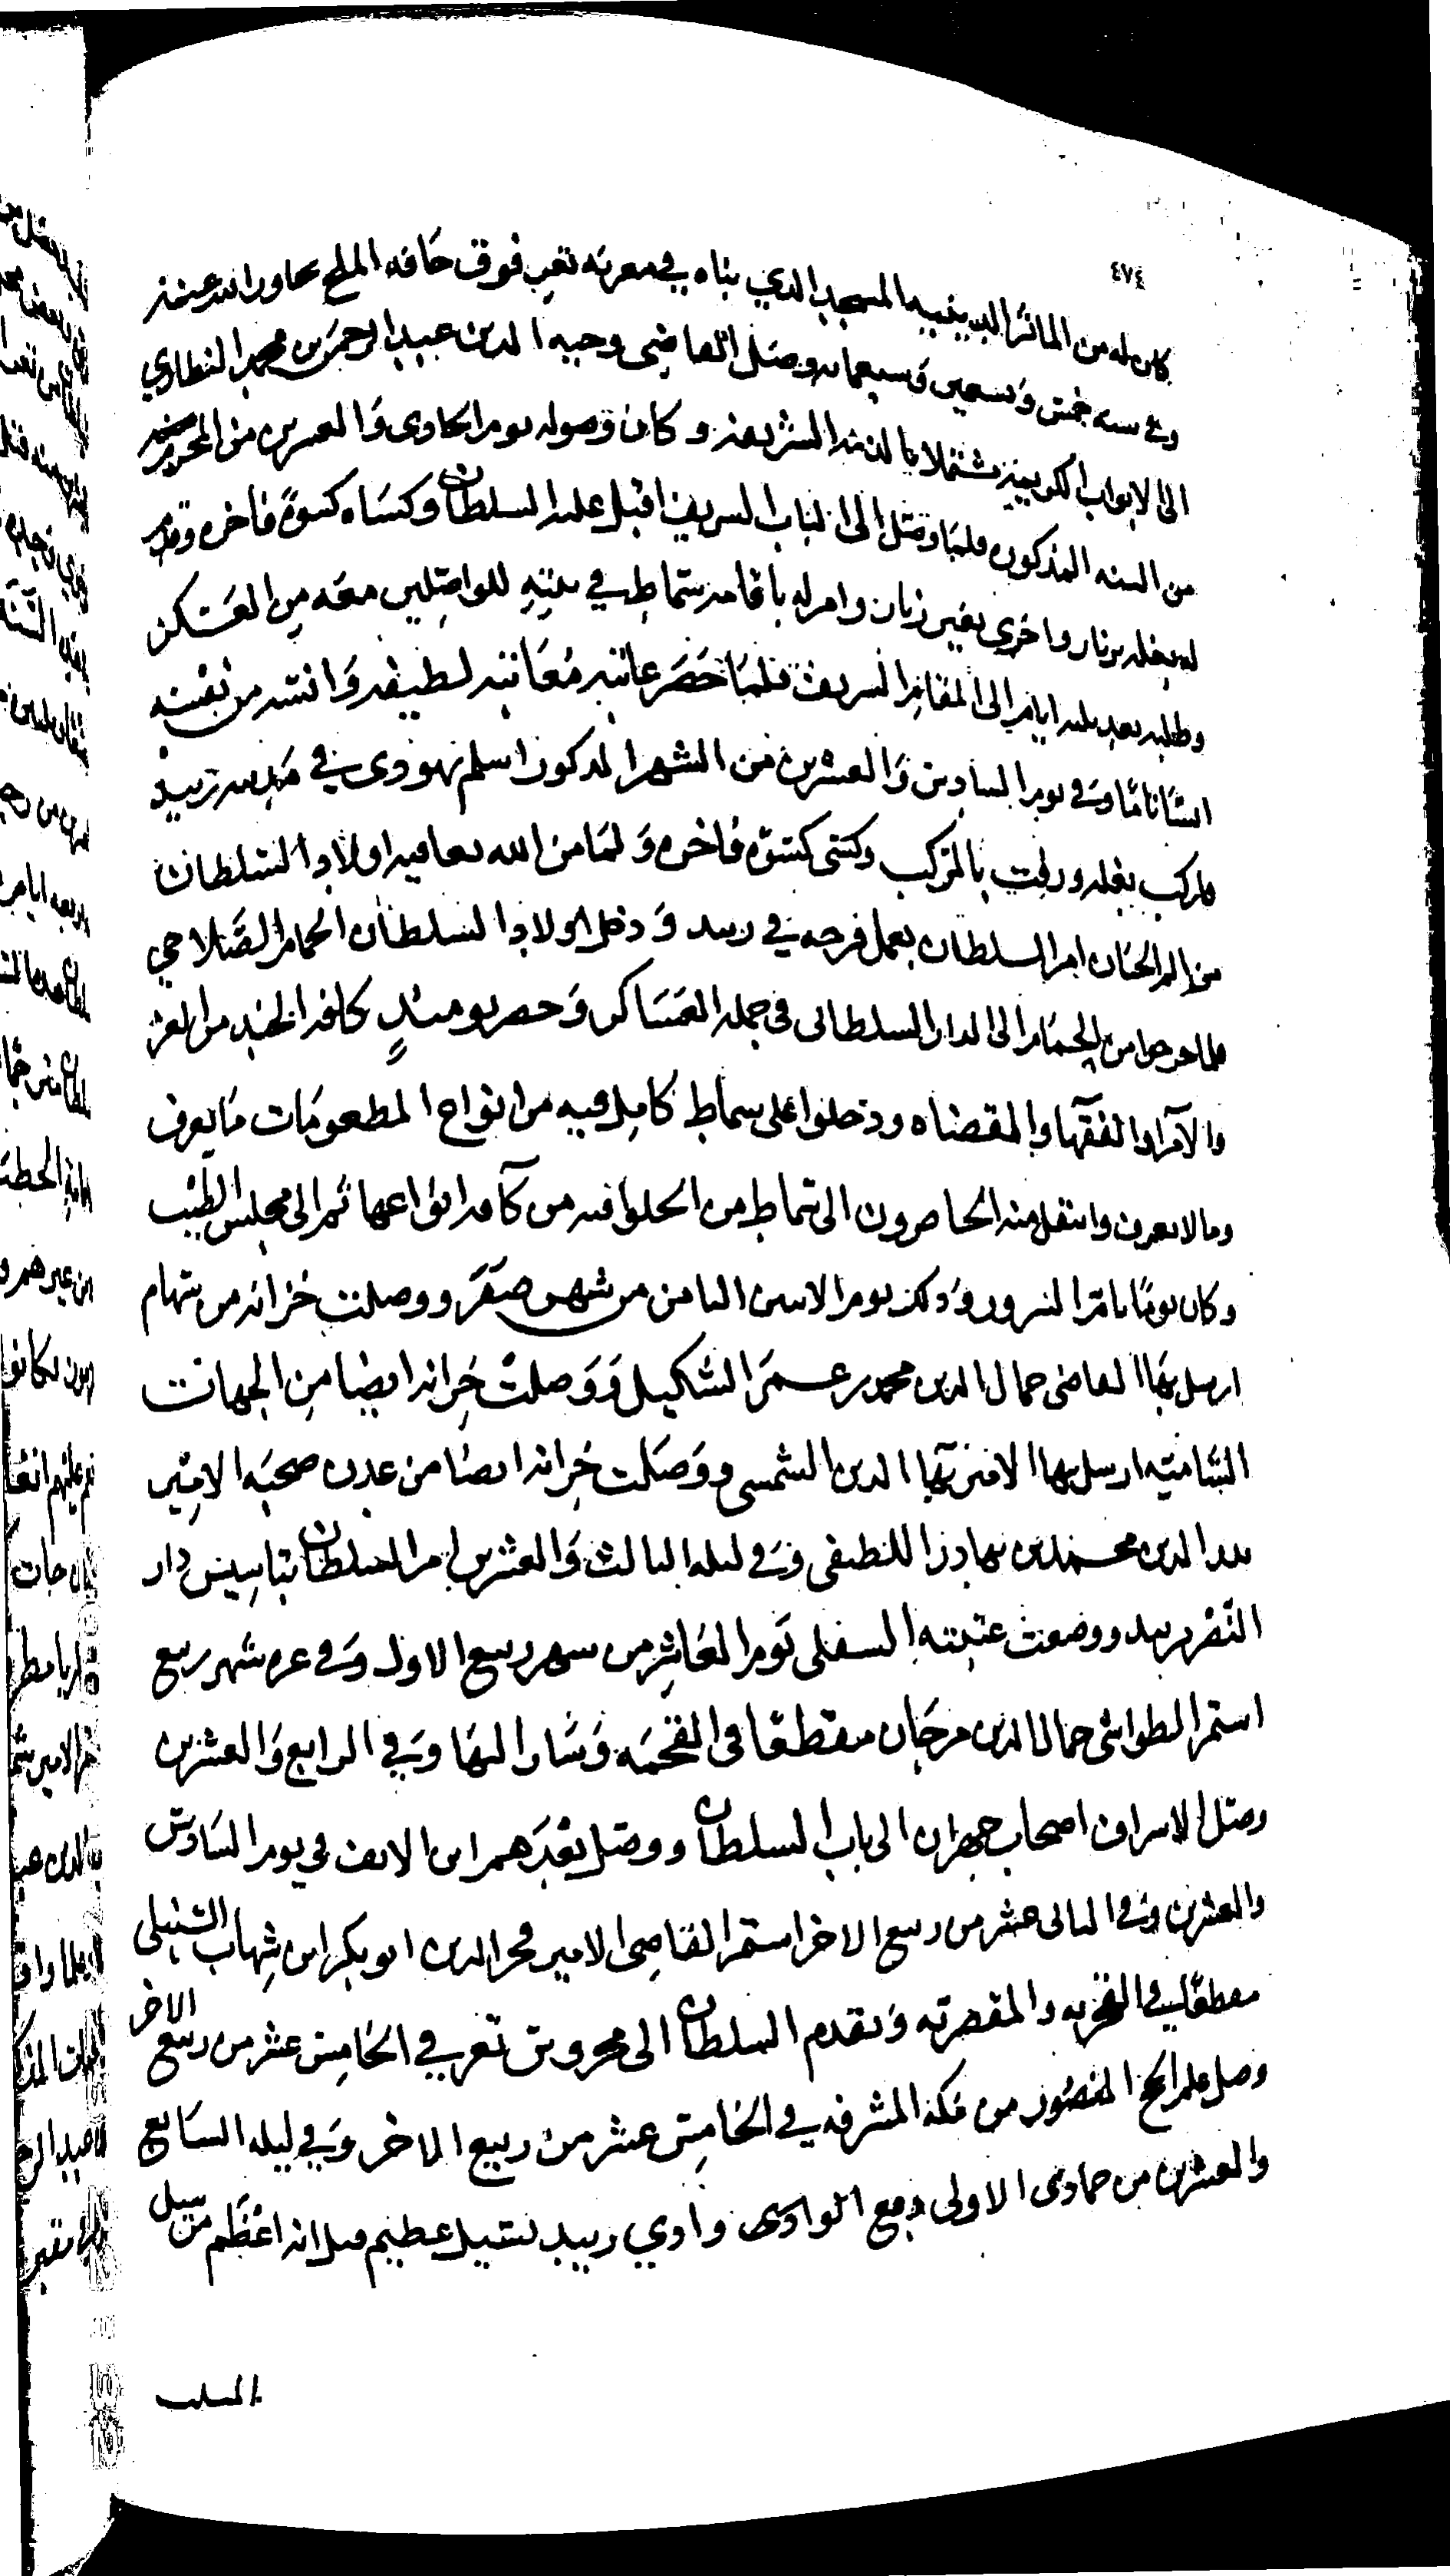 ٤٧٤
كان له من المآثر الدينيه المسجد الذي بناه في مغربه تعز فوق حافه الملح تجاوز الله عنه
وفي سنه خمس وتسعين وسبعمائه وصل القاضي وجيه الدين عبد الرحمن بن محمد النظاري
الى الابواب الكريمه مشتملا بالذمه الشريفه وكان وصوله يوم الحادي والعشرين من المحرم
من السنه المذكوره فلما وصل الى الباب الشريف اقبل عليه السلطان وكساه كسوة فاخره وقدم
له بغله بزنار واخرى بغير زنار وامر له باقامه سماط في بيته للواصلين معه من العسكر
وطلبه بعد ثلثه ايام الى المقام الشريف فلما حضر عاتبه معاتبه لطيفه وانسه من نفسه
انسا تاما وفي يوم السادس والعشرين من الشهر المذكور اسلم يهودي في مدينه زبيد
فاركب بغله وزفت بالمركب وكسى كسوة فاخره ولما من الله بعافيه اولاد السلطان
من الم الختان امر السلطان بعمل فرحه في زبيد ودخل اولاد السلطان الحمام الصلاحي
فلما خرجوا من الحمام الى الدار السلطاني في جمله العساكر وحضر يومئذ كافه الجند من الغز
والامرا والفقها والقضاه ودخلوا على سماط كامل فيه من انواع المطعومات ما يعرف
وما لا يعرف وانتقل منه الحاضرون الى سماط من الحلوا فيه من كافه انواعها ثم الى مجلس الطيب
وكان يوما تام السرور وذلك يوم الاثنين الثامن من شهر صفر ووصلت خزانه من سهام
ارسل بها القاضي جمال الدين محمد بن عمر الشكيل ووصلت خزانه ايضا من الجهات
الشاميه ارسل بها الامير بهاء الدين الشمسي ووصلت خزانه ايضا من عدن صحبه الامير
بدر الدين محمد بن بهادر اللطيفي وفي ليله الثالث والعشرين امر السلطان بتاسيس دار
النصر بزبيد ووضعت عتبته السفلى يوم العاشر من شهر ربيع الاول وفي غره شهر ربيع
استمر الطواشي جمال الدين مرجان مقطعا في القحمه وسار اليها وفي الرابع والعشرين
وصل الاشراف اصحاب جهران الى باب السلطان ووصل بعدهم ابن الانف في يوم السادس
والعشرين وفي الثاني عشر من ربيع الاخر استمر القاضي الامير فخر الدين ابو بكر ابن شهاب السنبلي
مقطعا في الفخريه والمقصريه وتقدم السلطان الى محروس تعز في الخامس عشر من ربيع الاخر
وصل علم الحج المنصور من مكة المشرفه في الخامس عشر من ربيع الاخر وفي ليله السابع
والعشرين من جمادى الاولى دفع الوادي وادي زبيد بسيل عظيم قيل انه اعظم من سيل
السلب